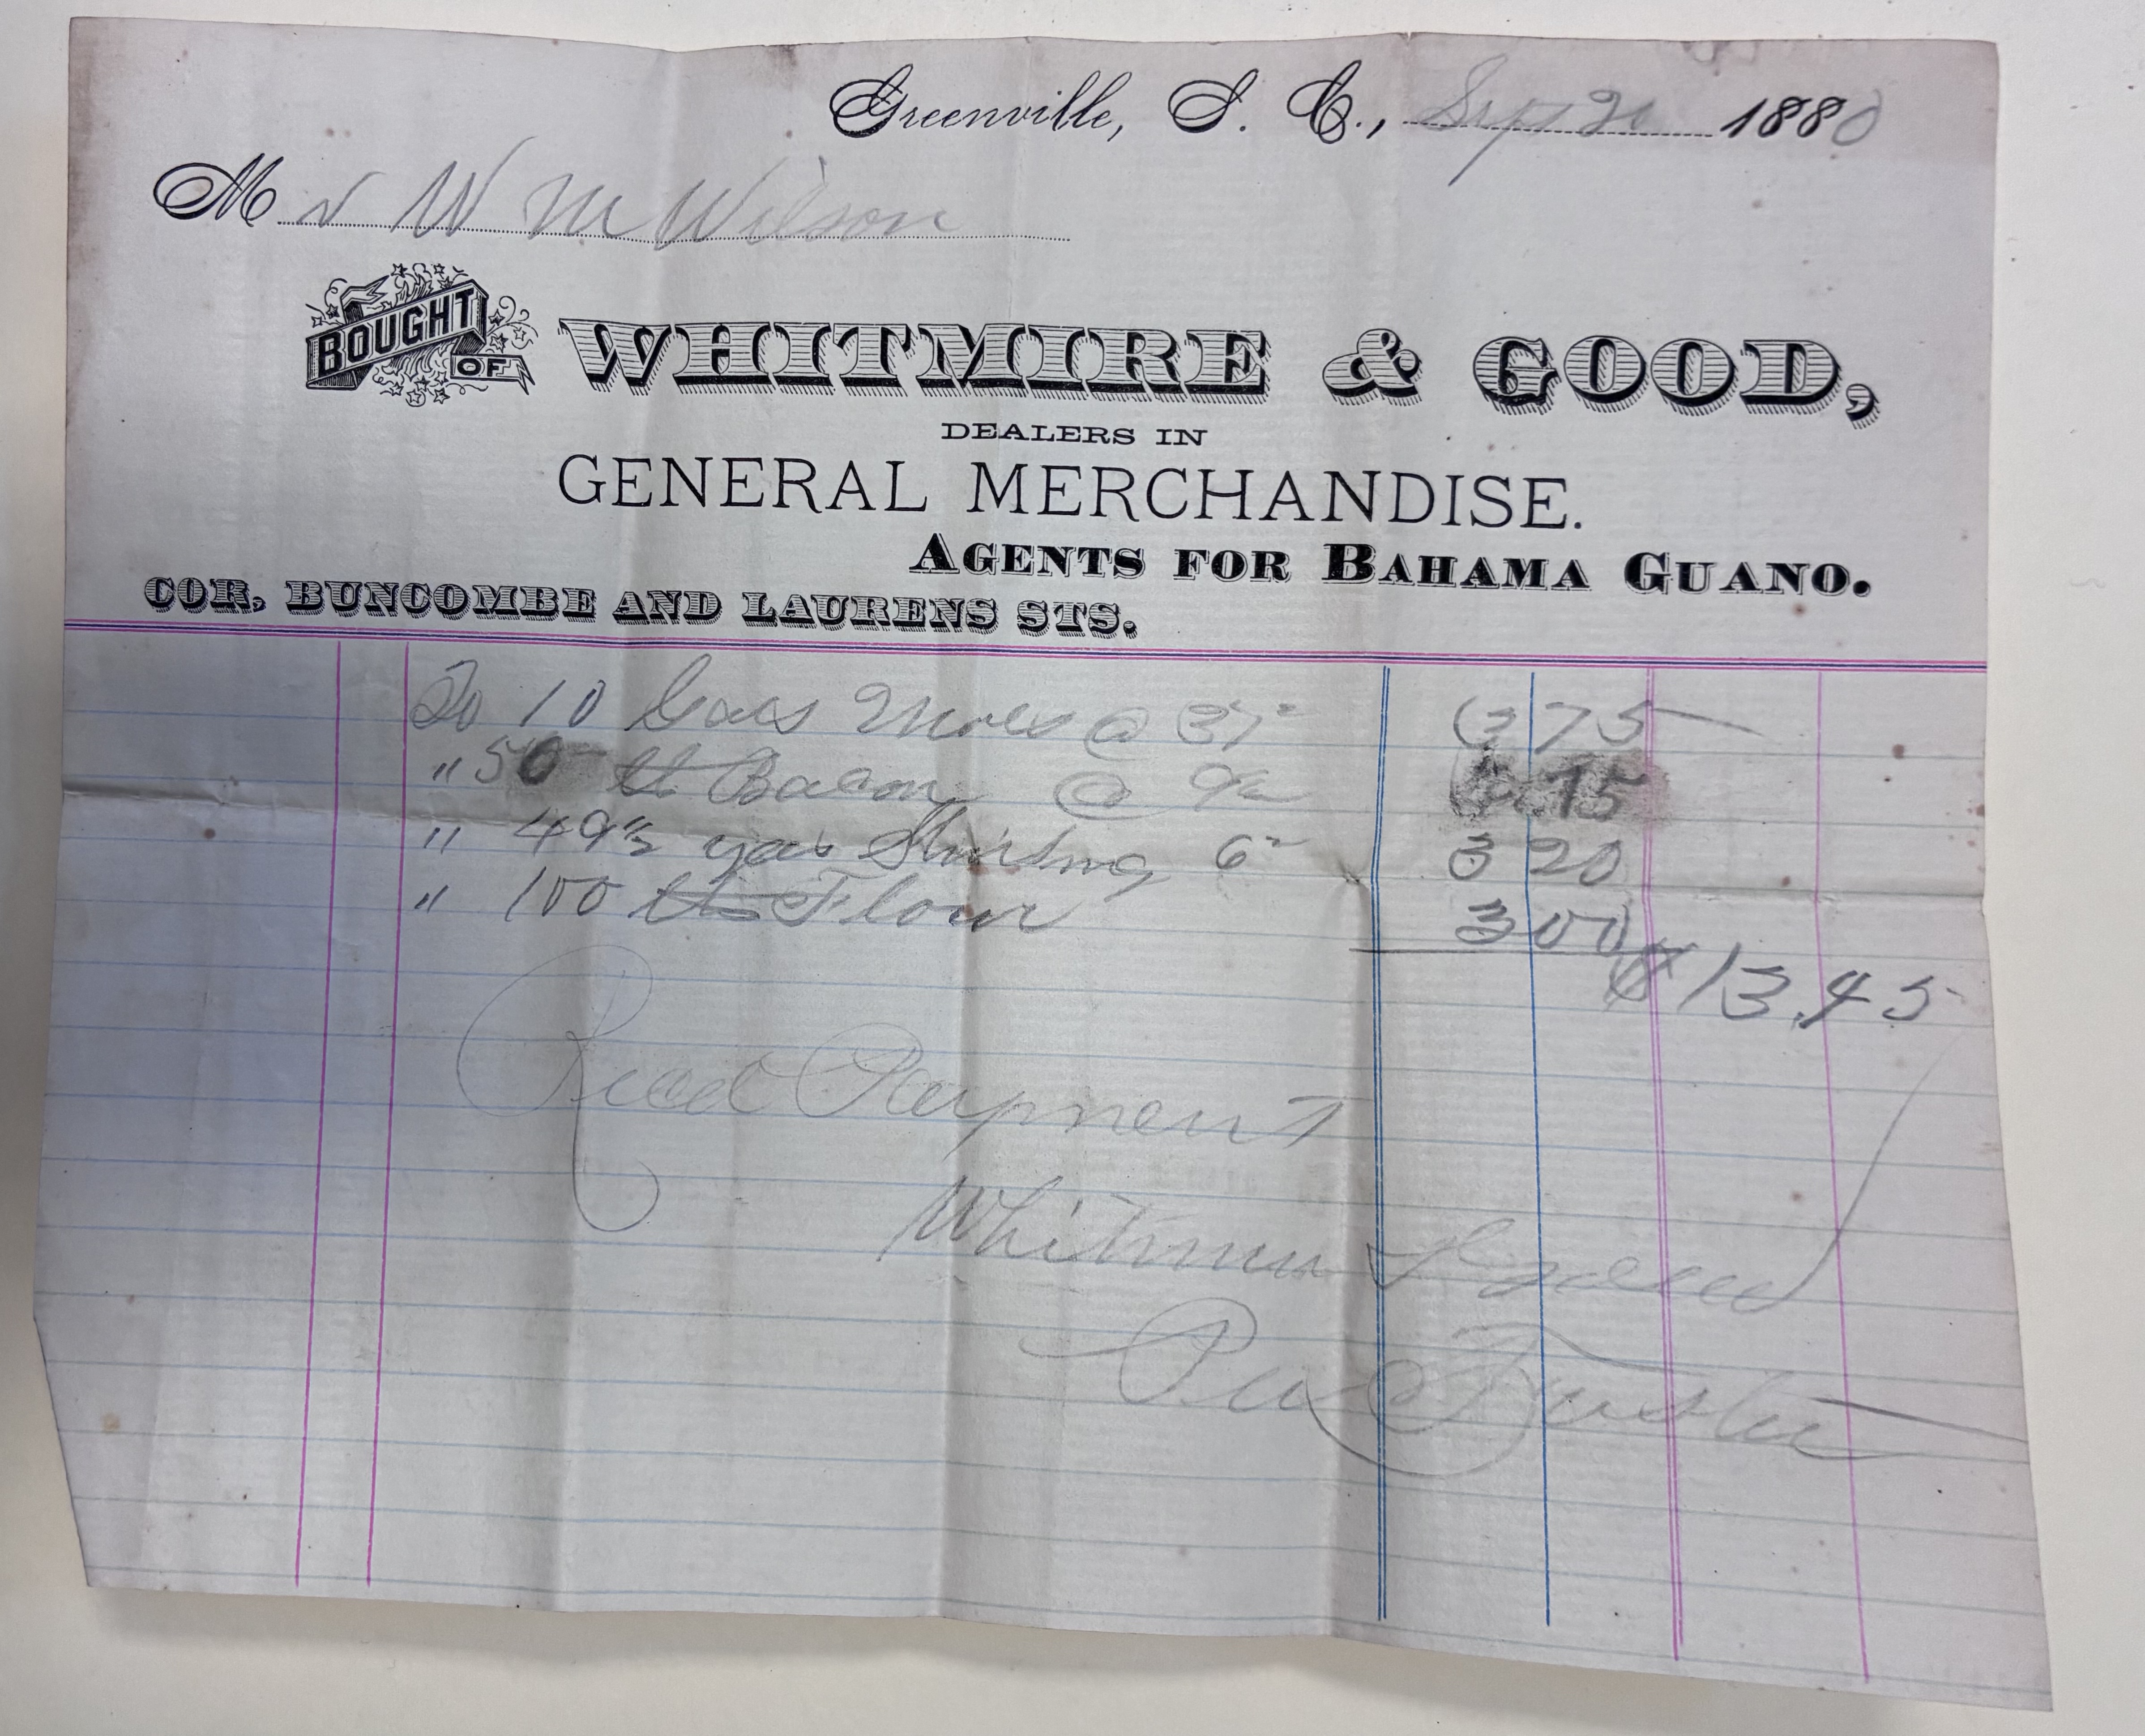 Greenville, S. C., Sept 20 1880
Mr W M Wilson
BOUGHT OF WHITMIRE & GOOD,
DEALERS IN
GENERAL MERCHANDISE.
AGENTS FOR BAHAMA GUANO.
COR. BUNCOMBE AND LAURENS STS.
To 10 Gals Molas @ 37 3 75
" 50 lb Bacon @
" 49 yds Shirting 6 3 20
" 100 lbs Flour 3 00
$13.45
Recd Payment
Whitmire & Good
Per